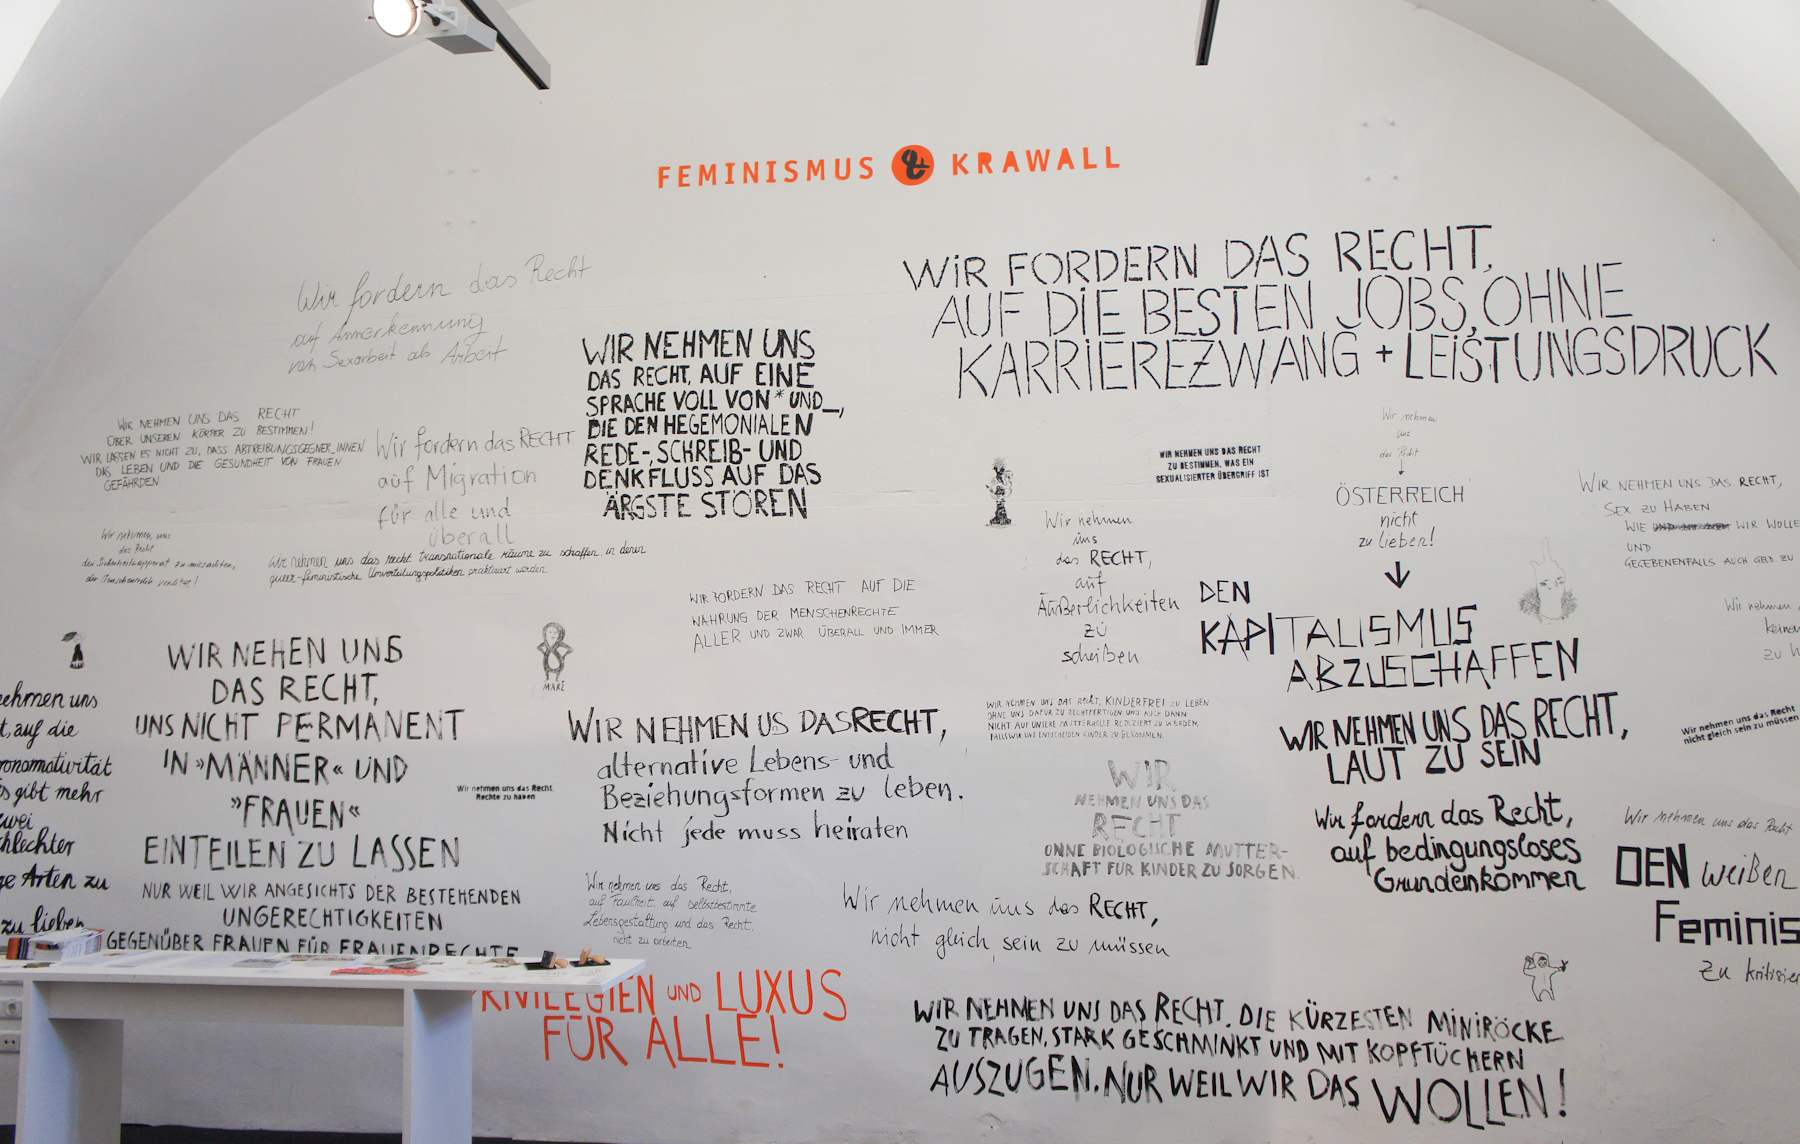 FEMINISMUS & KRAWALL
Wir fordern das Recht
auf Annerkennung
von Sexarbeit als Arbeit
WIR NEHMEN UNS DAS RECHT
ÜBER UNSEREN KÖRPER ZU BESTIMMEN!
WIR LASSEN ES NICHT ZU, DASS ABTREIBUNGSGEGNER_INNEN
DAS LEBEN UND DIE GESUNDHEIT VON FRAUEN
GEFÄHRDEN
Wir fordern das RECHT
auf Migration
für alle und
überall
WIR NEHMEN UNS
DAS RECHT, AUF EINE
SPRACHE VOLL VON * UND _,
DIE DEN HEGEMONIALEN
REDE-, SCHREIB- UND
DENKFLUSS AUF DAS
ÄRGSTE STÖREN
WIR FORDERN DAS RECHT,
AUF DIE BESTEN JOBS, OHNE
KARRIEREZWANG + LEISTUNGSDRUCK
Wir nehmen uns
das Recht
den Sicherheitsapparat zu missachten,
der Menschenrechte verletzt!
Wir nehmen uns das recht transnationale räume zu schaffen, in denen
queer-feministische Umverteilungspolitiken praktiziert werden
WIR FORDERN DAS RECHT AUF DIE
WAHRUNG DER MENSCHENRECHTE
ALLER UND ZWAR ÜBERALL UND IMMER
WIR NEHMEN UNS DAS RECHT
ZU BESTIMMEN, WAS EIN
SEXUALISIERTER ÜBERGRIFF IST
Wir nehmen
uns
das RECHT,
auf
Äußerlichkeiten
zu
scheißen
Wir nehmen
uns
das Recht
ÖSTERREICH
nicht
zu lieben!
DEN
KAPITALISMUS
ABZUSCHAFFEN
WIR NEHMEN UNS DAS RECHT,
SEX ZU HABEN
WIE WIR WOLLE
UND
GEGEBENENFALLS AUCH GELD ZU
Wir nehmen
keinen
zu
nehmen uns
t, auf die
ronomativität
s gibt mehr
zwei
chlechter
ge Arten zu
zu lieben
WIR NEHEN UNS
DAS RECHT,
UNS NICHT PERMANENT
IN »MÄNNER« UND
»FRAUEN«
EINTEILEN ZU LASSEN
NUR WEIL WIR ANGESICHTS DER BESTEHENDEN
UNGERECHTIGKEITEN
GEGENÜBER FRAUEN FÜR FRAUENRECHTE
MÄRZ
Wir nehmen uns das Recht,
Rechte zu haben
WIR NEHMEN US DAS RECHT,
alternative Lebens- und
Beziehungsformen zu leben.
Nicht jede muss heiraten
WIR NEHMEN UNS DAS RECHT, KINDERFREI ZU LEBEN
OHNE UNS DAFÜR ZU RECHTFERTIGEN UND AUCH DANN
NICHT AUF UNSERE MUTTERROLLE REDUZIERT ZU WERDEN,
FALLS WIR UNS ENTSCHEIDEN KINDER ZU BEKOMMEN.
WIR
NEHMEN UNS DAS
RECHT
OHNE BIOLOGISCHE MUTTER-
SCHAFT FÜR KINDER ZU SORGEN.
WIR NEHMEN UNS DAS RECHT,
LAUT ZU SEIN
Wir nehmen uns das Recht
nicht gleich sein zu müssen
Wir fordern das Recht,
auf bedingungsloses
Grundeinkommen
Wir nehmen uns das Recht
DEN weißen
Feminis
zu kritisier
Wir nehmen uns das Recht,
auf Faulheit, auf selbstbestimmte
Lebensgestaltung und das Recht,
nicht zu arbeiten
Wir nehmen uns das RECHT,
nicht gleich sein zu müssen
PRIVILEGIEN UND LUXUS
FÜR ALLE!
WIR NEHMEN UNS DAS RECHT, DIE KÜRZESTEN MINIRÖCKE
ZU TRAGEN, STARK GESCHMINKT UND MIT KOPFTÜCHERN
AUSZUGEHN. NUR WEIL WIR DAS WOLLEN!